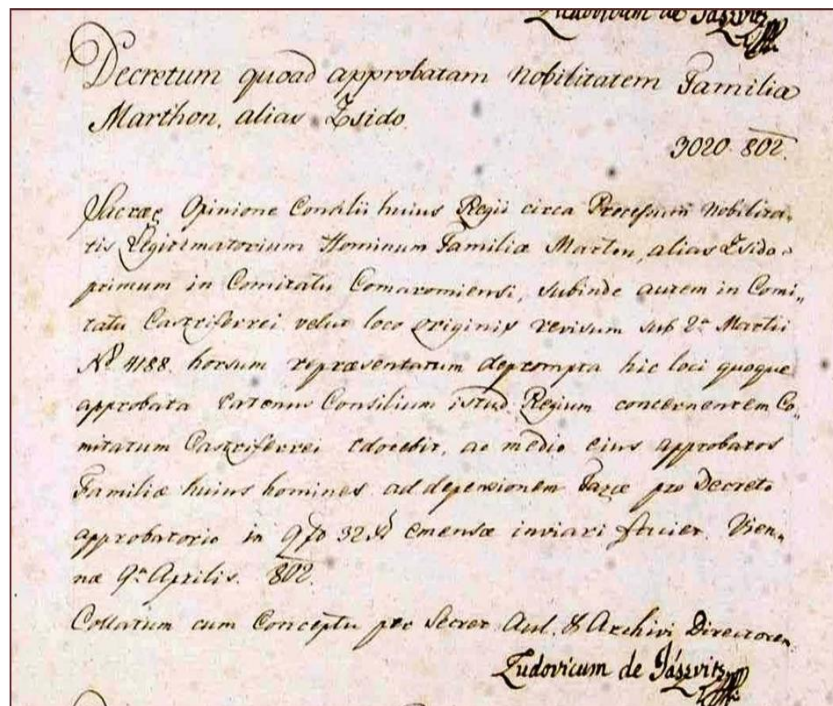 Ludovicum de Jászvitz
Decretum quoad approbatam Nobilitatem Familiæ
Marthon, alias Zsido.
3020. 802.
Sacræ Opinione Consilii huius Regii circa Processum Nobilita-
tis Legitimatorium Hominum Familiæ Marton, alias Zsido
primum in Comitatu Comaromiensi, subinde autem in Comi-
tatu Castriferrei velut loco originis revisum sub 2a Martii
No 4188. horsum repræsentatum deprompta hic loci quoque
approbata eatenus Consilium istud Regium concernentem Co-
mitatum Castriferrei edocebit, ac medio eius approbatos
Familiæ huius homines ad depensionem Taxæ pro Decreto
approbatorio in 9 f 32 emensæ inviari faciet. Vien-
næ 9a Aprilis. 802.
Collatum cum Conceptu per Secret. Aul. & Archivi Directorem
Ludovicum de Jászvitz